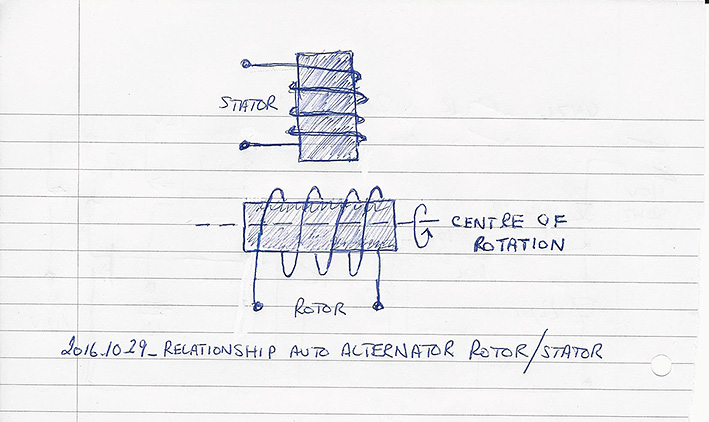 STATOR
CENTRE OF
ROTATION
ROTOR
2016.10.29_ RELATIONSHIP AUTO ALTERNATOR ROTOR/STATOR